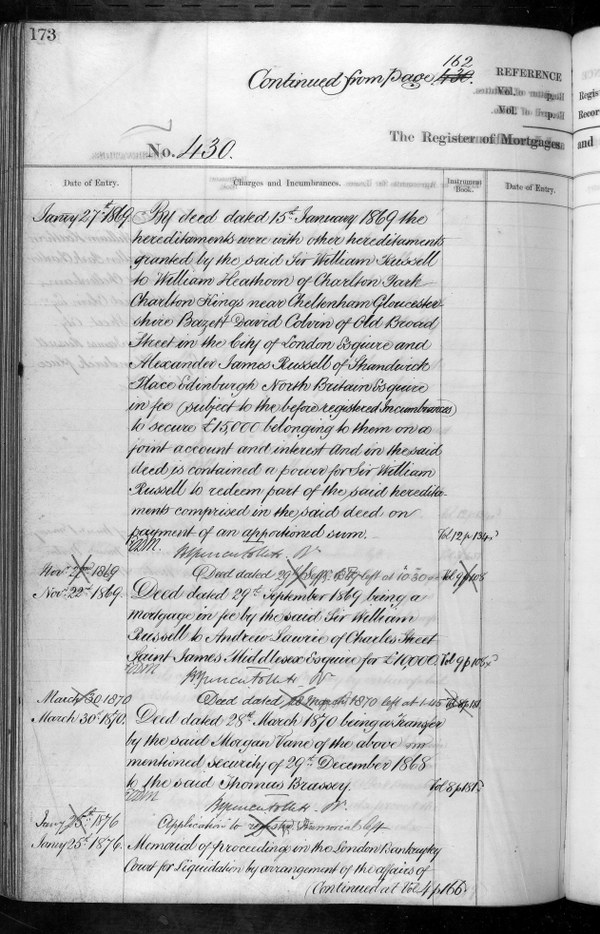 173
Continued from Page 430. 162
REFERENCE
Vol. p.
Vol. p.
The Register of Mortgages
No. 430.
Date of Entry. Charges and Incumbrances. Instrument Book. Date of Entry.
Regis
Recor
and
Jany 27th 1869 By deed dated 15th January 1869 the
hereditaments were with other hereditaments
granted by the said Sir William Russell
to William Heathorn of Charlton Park
Charlton Kings near Cheltenham Gloucester-
shire Bazett David Colvin of Old Broad
Street in the City of London Esquire and
Alexander James Russell of Shandwick
Place Edinburgh North Britain Esquire
in fee (subject to the before registered Incumbrances)
to secure £15,000 belonging to them on a
joint account and interest And in the said
deed is contained a power for Sir William
Russell to redeem part of the said heredita-
ments comprised in the said deed on
payment of an apportioned sum. Vol 12 p 134
Novr 1869 Deed dated 29th Septr 1869 left at 10 30 Vol 9 p 108
Novr 22nd 1869. Deed dated 29th September 1869 being a
mortgage in fee by the said Sir William
Russell to Andrew Lawrie of Charles Street
Saint James Middlesex Esquire for £10000. Vol 9 p 106
March 30 1870 Deed dated 28 March 1870 left at 1.45 Vol 8 p 181
March 30th 1870. Deed dated 28th March 1870 being a Transfer
by the said Morgan Vane of the above
mentioned security of 29th December 1868
to the said Thomas Brassey. Vol 8 p 181
Jany 25th 1876 Application to register Memorial left
Jany 25th 1876. Memorial of proceeding in the London Bankruptcy
Court for Liquidation by arrangement of the affairs of
(Continued at Vol 4 p 166